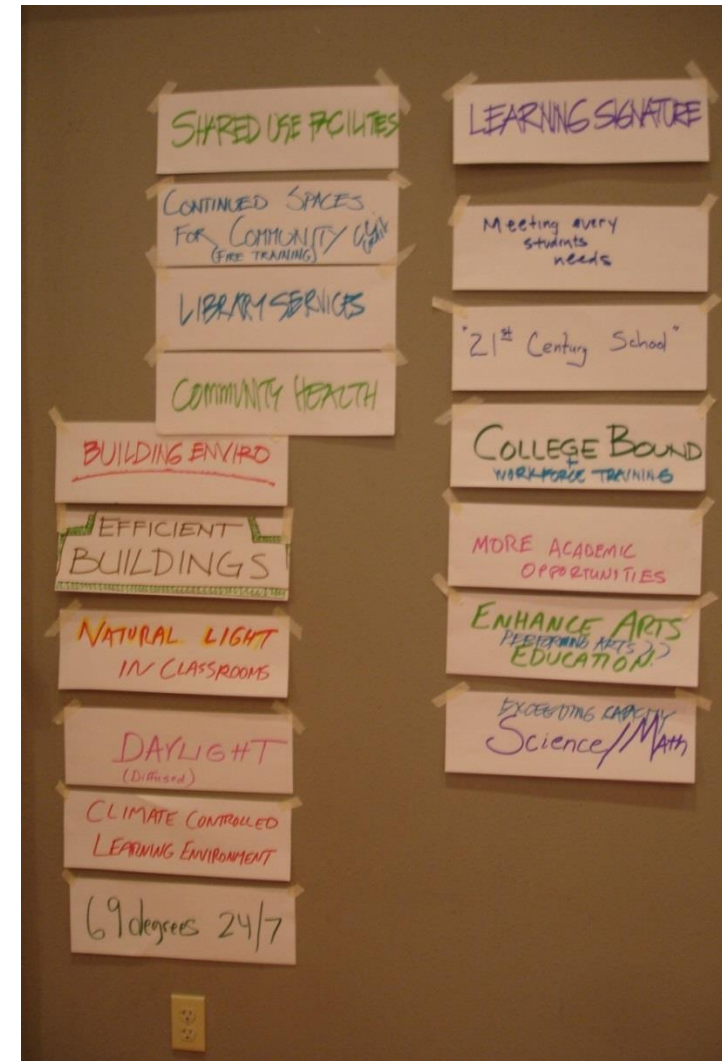 SHARED USE FACILITES
CONTINUED SPACES
FOR COMMUNITY
(FIRE TRAINING)
LIBRARY SERVICES
COMMUNITY HEALTH
BUILDING ENVIRO
EFFICIENT
BUILDINGS
NATURAL LIGHT
IN CLASSROOMS
DAYLIGHT
(Diffused)
CLIMATE CONTROLLED
LEARNING ENVIRONMENT
69 degrees 24/7
LEARNING SIGNATURE
Meeting every
students
needs
"21st Century School"
COLLEGE BOUND
+
WORKFORCE TRAINING
MORE ACADEMIC
OPPORTUNITIES
ENHANCE ARTS
PERFORMING ARTS
EDUCATION
EXCEEDING
Science/Math